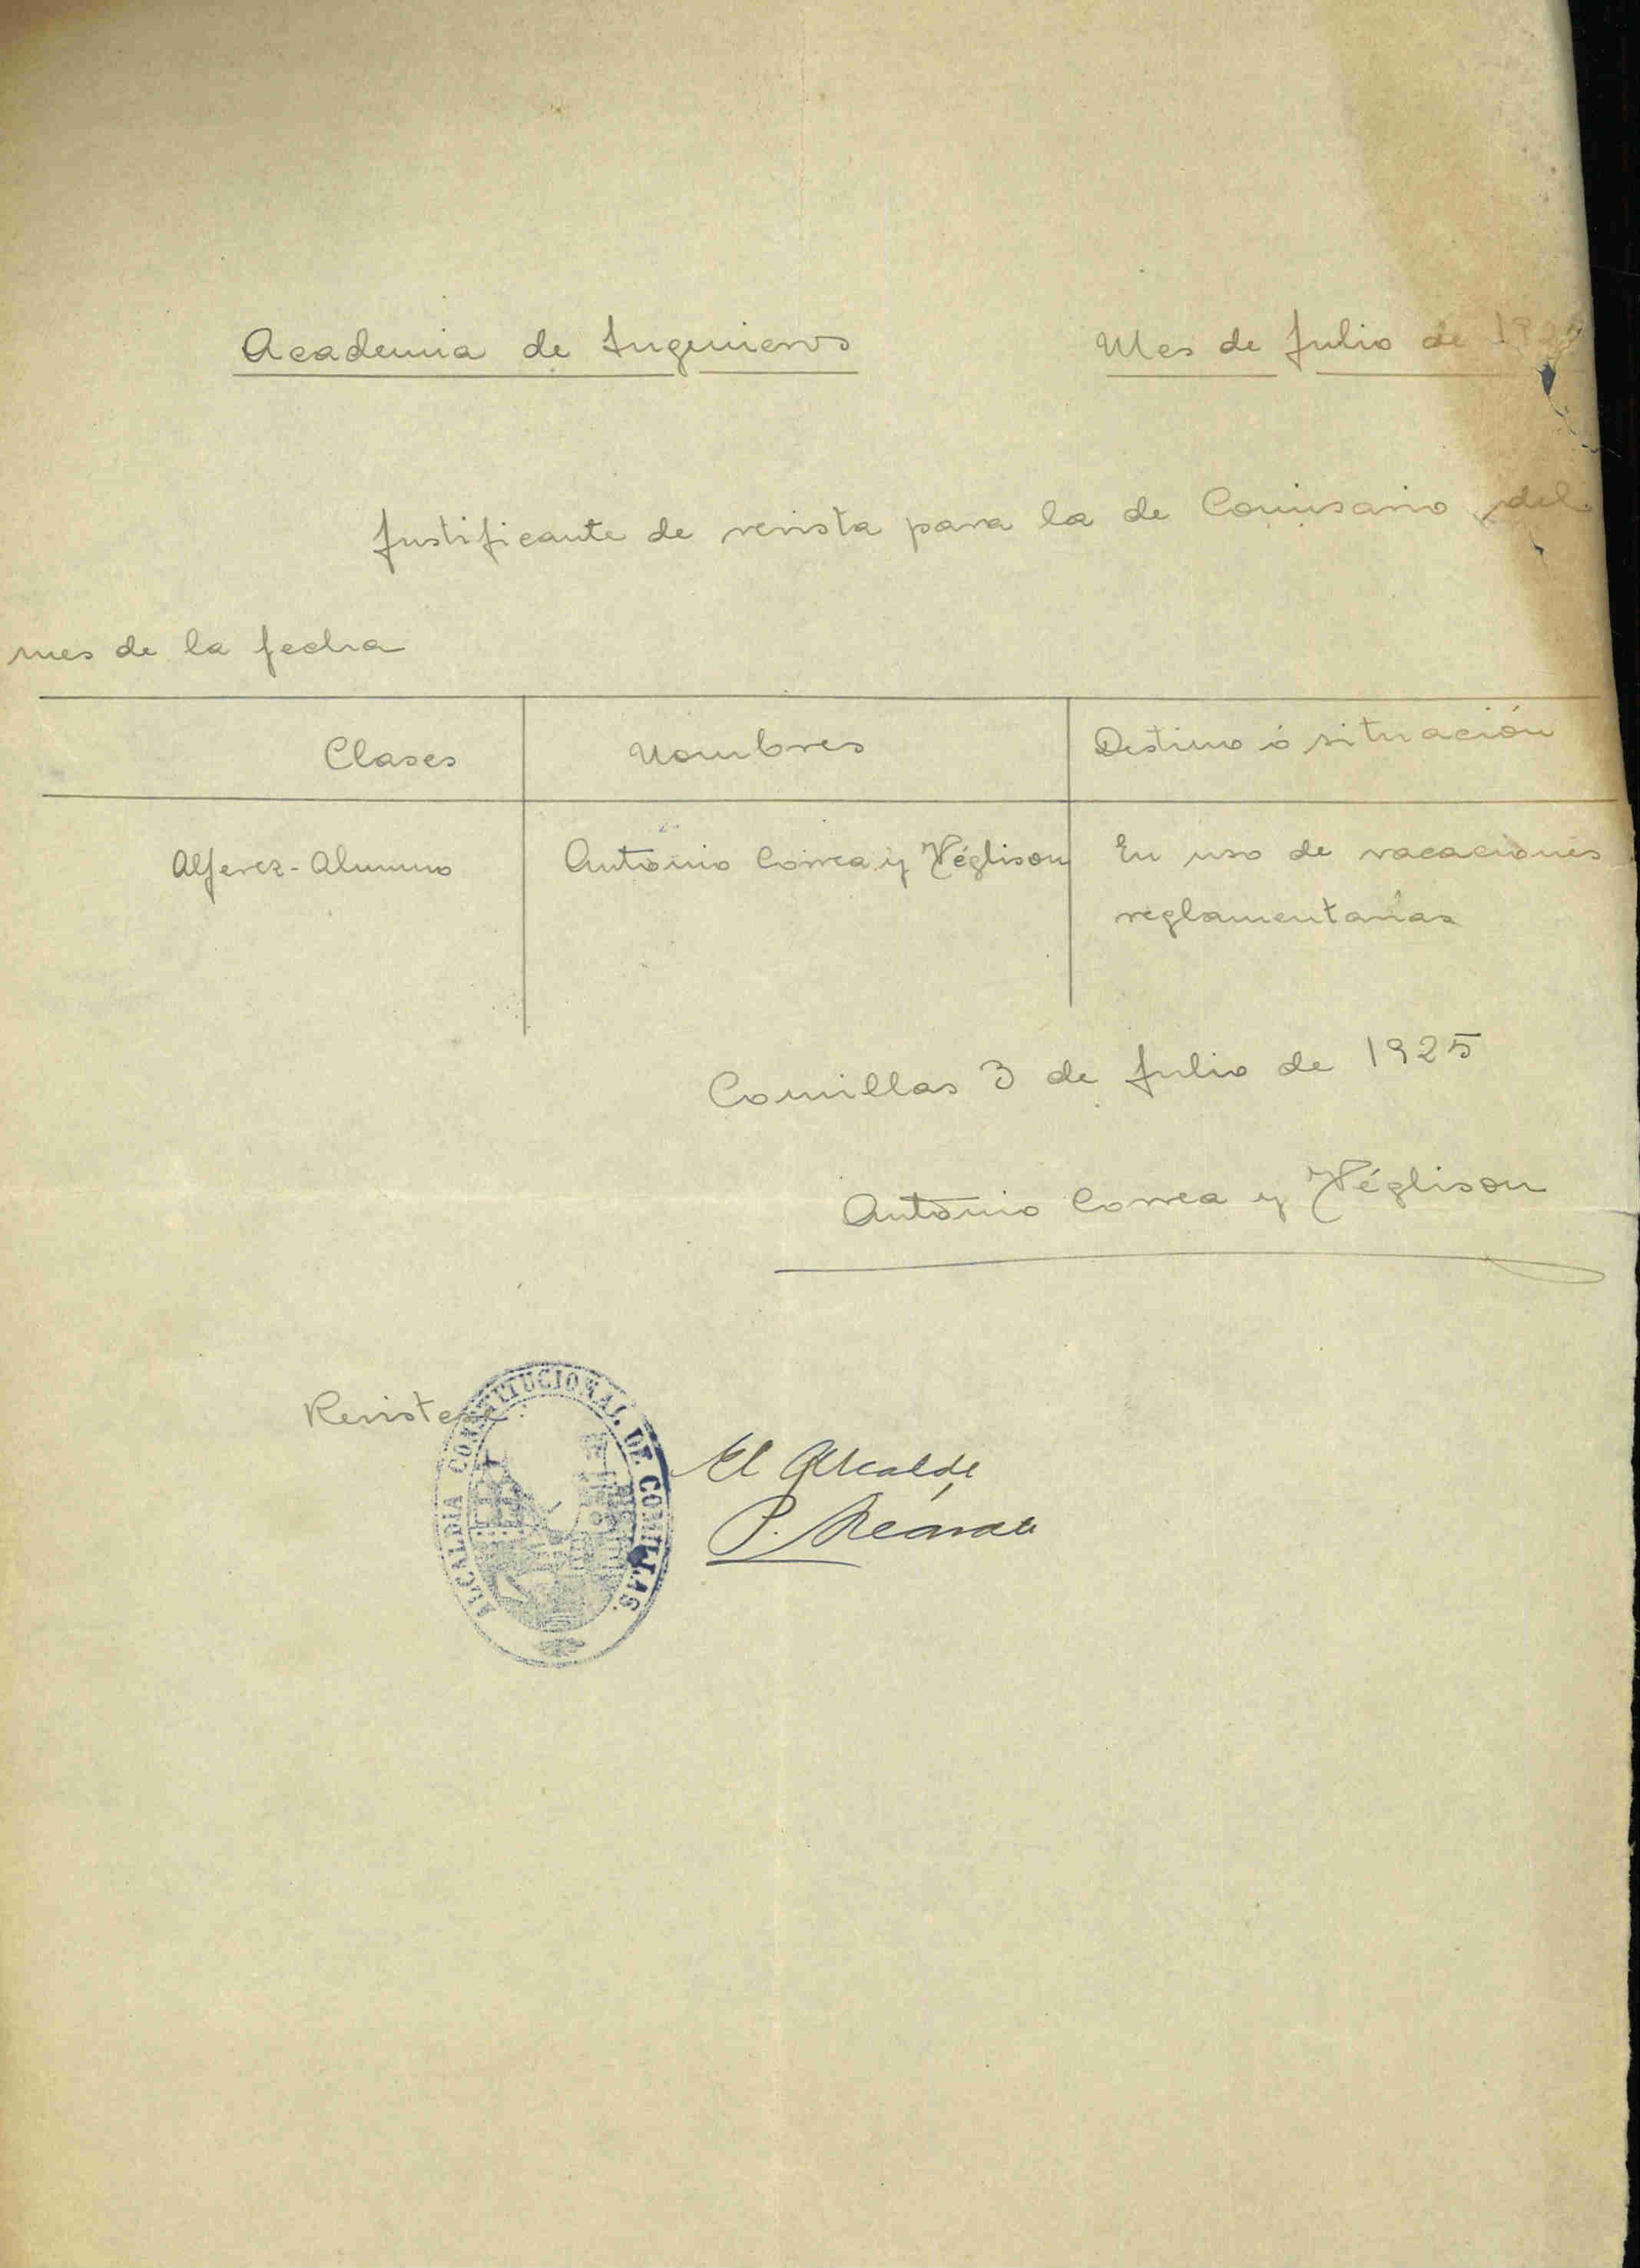 Academia de Ingenieros
Mes de Julio de 192
Justificante de revista para la de Comisario del
mes de la fecha
Clases
Nombres
Destino ó situación
Alferez-Alumno
Antonio Correa y Véglison
En uso de vacaciones
reglamentarias
Comillas 3 de Julio de 1925
Antonio Correa y Véglison
Revistese:
ALCALDIA CONSTITUCIONAL. DE COMILLAS.
El Alcalde
P.